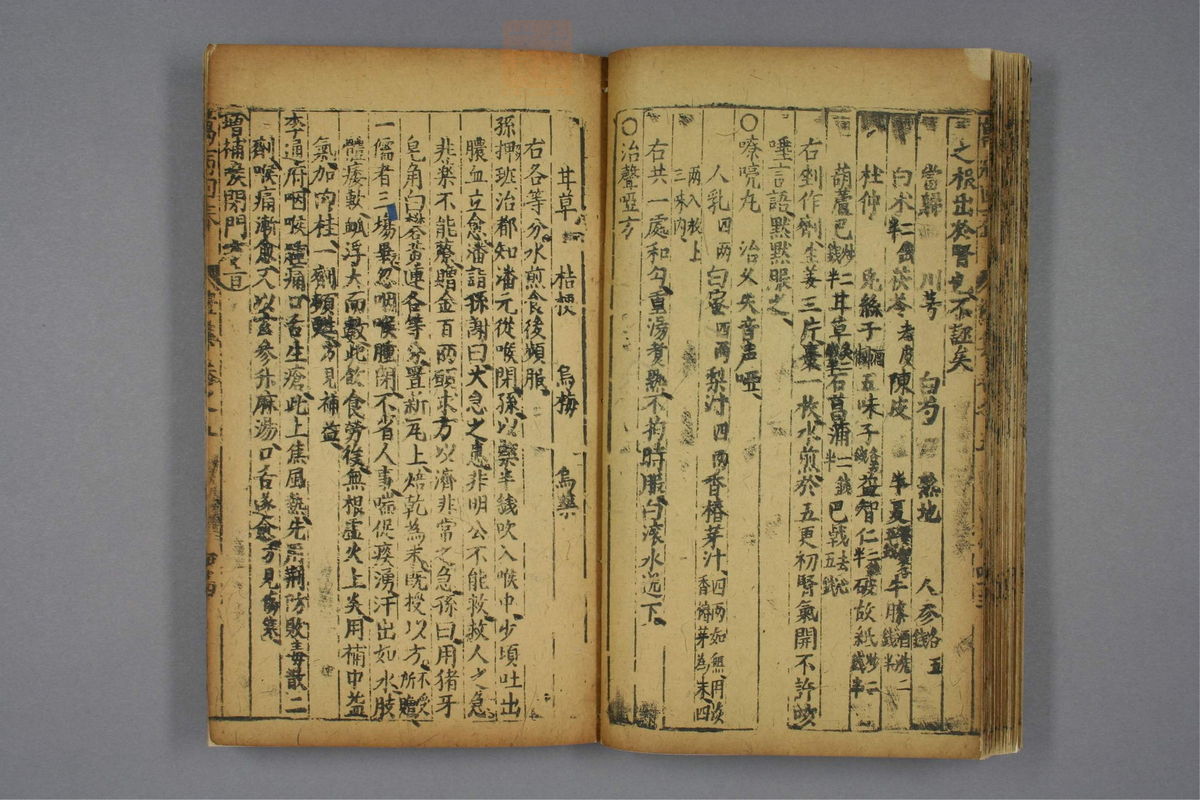 之根出於腎也不誣矣
當歸 川芎 白芍 熟地 人參各五
白朮二錢半 茯苓去皮 陳皮 半夏 牛膝酒洗二錢半
杜仲 兔絲子酒 五味子各 益智仁二錢半 破故紙炒二錢半
葫蘆巴炒二錢半 甘草炙二 石菖蒲二錢半 巴戟去心五錢
右剉作劑生姜三片棗一枚水煎於五更初腎氣開不許咳
唾言語默默服之
○嘹喨丸 治久失音声啞
人乳四両 白蜜四両 梨汁四両 香椿芽汁四両如無用淡香椿芽為末四
両入上
三味內
右共一處和勻重湯煮熟不拘時服白滾水送下
○治聲啞方
甘草 桔梗 烏梅 烏藥
右各等分水煎食後頻服
孫押班治都知潘元從喉閉孫以藥半錢吹入喉中少頃吐出
膿血立愈潘詣孫謝曰大急之患非明公不能救救人之急
非藥不能療贈金百両願求方以濟非常之急孫曰用猪牙
皂角白礬黃連各等分置新瓦上焙乾為末既授以方不受所贈
一儒者三場畢忽咽喉腫閉不省人事喘促痰湧汗出如水肢
體痿軟脈浮大而數此飲食勞役無根虛火上炎用補中益
氣加肉桂一劑頓甦方見補益
李通府咽喉腫痛口舌生瘡此上焦風熱先用荊防敗毒散二
劑喉痛漸愈又以玄參升麻湯口舌遂愈方見
增補喉閉門